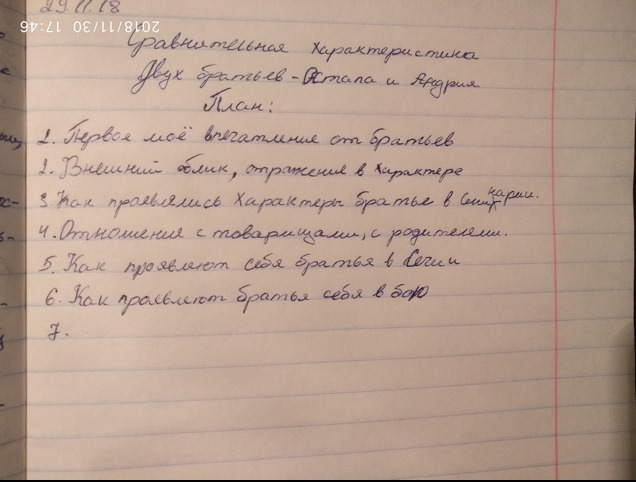 29.11.18
2018/11/30 17:46
Сравнительная характеристика
Двух братьев - Остапа и Андрия
План:
1. Первое моё впечатление от братьев
2. Внешний облик, отражение в характере
3 Как проявлялись характеры братье в семинарии.
4. Отношения с товарищами, с родителями.
5. Как проявляют себя братья в Сечи
6. Как проявляют братья себя в бою
7.